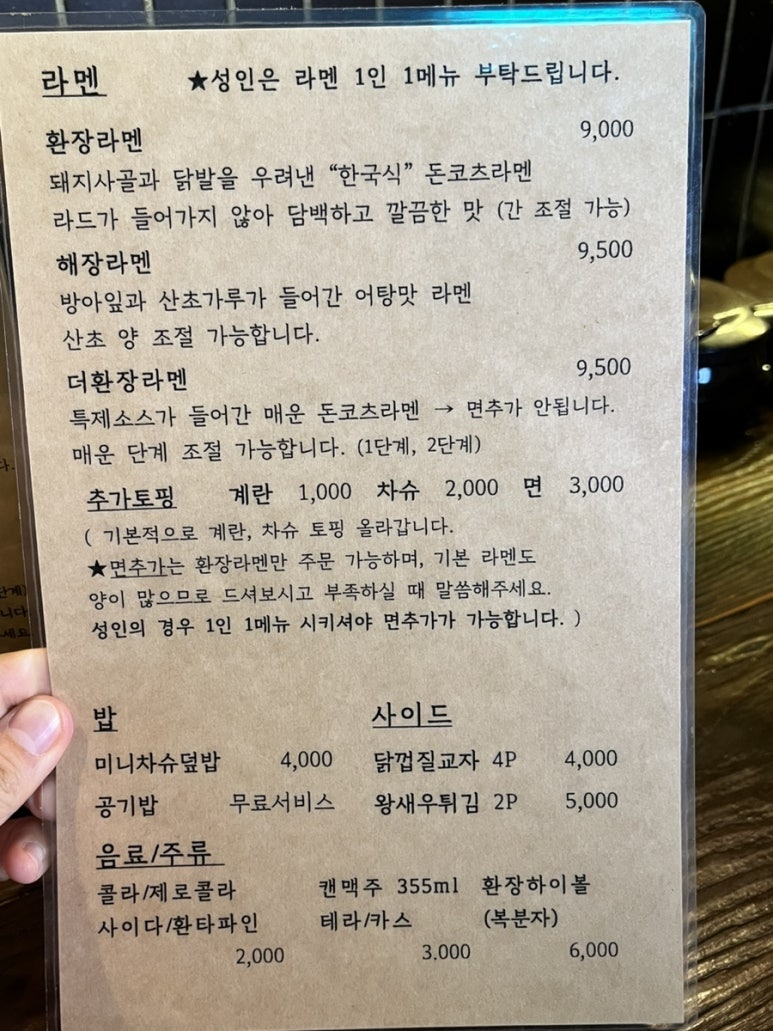 라멘 ★성인은 라멘 1인 1메뉴 부탁드립니다.
환장라멘 9,000
돼지사골과 닭발을 우려낸 “한국식” 돈코츠라멘
라드가 들어가지 않아 담백하고 깔끔한 맛 (간 조절 가능)
해장라멘 9,500
방아잎과 산초가루가 들어간 어탕맛 라멘
산초 양 조절 가능합니다.
더환장라멘 9,500
특제소스가 들어간 매운 돈코츠라멘 → 면추가 안됩니다.
매운 단계 조절 가능합니다. (1단계, 2단계)
추가토핑 계란 1,000 차슈 2,000 면 3,000
( 기본적으로 계란, 차슈 토핑 올라갑니다.
★면추가는 환장라멘만 주문 가능하며, 기본 라멘도
양이 많으므로 드셔보시고 부족하실 때 말씀해주세요.
성인의 경우 1인 1메뉴 시키셔야 면추가가 가능합니다. )
밥 사이드
미니차슈덮밥 4,000 닭껍질교자 4P 4,000
공기밥 무료서비스 왕새우튀김 2P 5,000
음료/주류
콜라/제로콜라 캔맥주 355ml 환장하이볼
사이다/환타파인 테라/카스 (복분자)
2,000 3.000 6,000